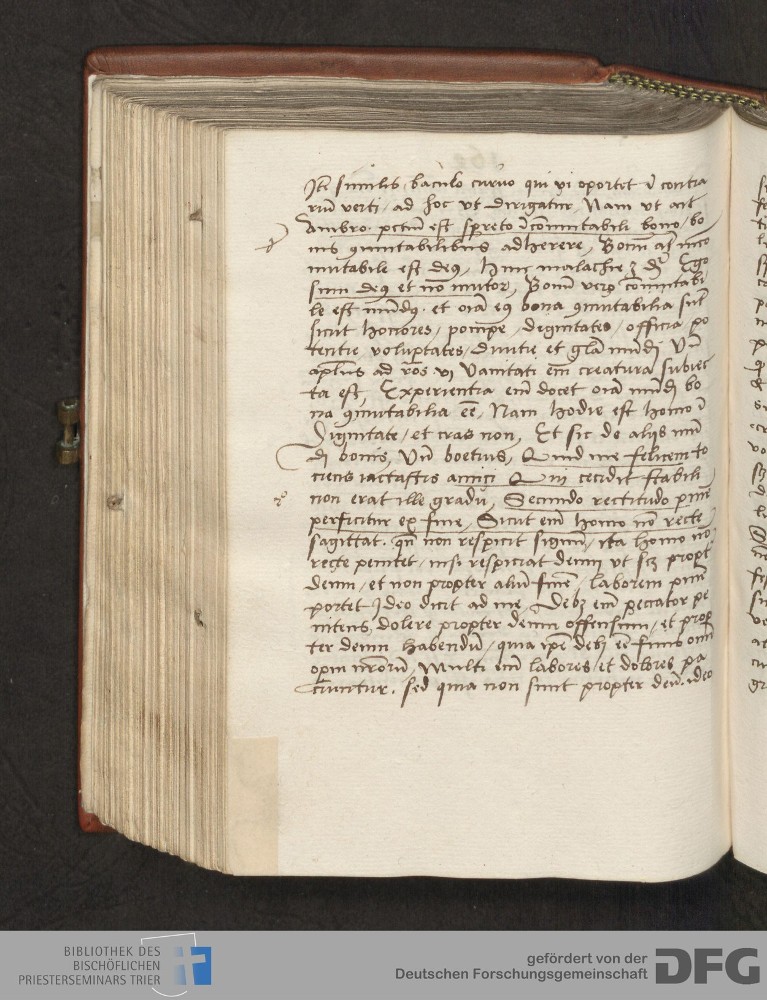 Itē similis baculo curuo qui vi oportet ī contra
riū verti, ad hoc vt dirigatur, Nam vt ait
Ambro. pctm̄ est spreto īcōmutabili bono, bo
nis 9mutabilibus adherere, Bonū inco
mutabile est deq, malachie 3 dr̄ Ego
sum deq et nō mutor, Bonū vero cōmutabi
le est mūdq, et oīa eq bona 9mutabilia sūt
sicut honores, pompe, dignitates, officia, po
tentie, voluptates, diuitie et glā mūdi Vn̄
apl̄us ad ros vi Vanitati em̄ creatura subiec
ta est, Experientia em̄ docet oīa mūdi bo
na 9mutabilia eē, Nam hodie est homo ī
dignitate, et cras non, Et sic de alijs mū
di bonis, Vn̄ boetius, Quid me felicem to
ciens iactastis amici Qui cecidit stabili
2º
non erat ille gradu, Secundo rectitudo pīnē
perficitur ex fine, Sicut em̄ homo nō recte
sagittat, qn̄ non respicit signū, ita homo nō
recte penitet, nisi respiciat deum vt scz propt
deum, et non propter aliū finē, laborem
portet Ideo dicit ad me, Debz em̄ peccator pe
nitens dolere propter deum offensum, et prop
ter deum habendū, quia ipē debz eē finis oīm
opm nr̄orū, Multi em̄ labores et dolores pa
ciuntur, sed quia non sunt propter deū, ideo
BIBLIOTHEK DES
BISCHÖFLICHEN
PRIESTERSEMINARS TRIER
gefördert von der
Deutschen Forschungsgemeinschaft
DFG